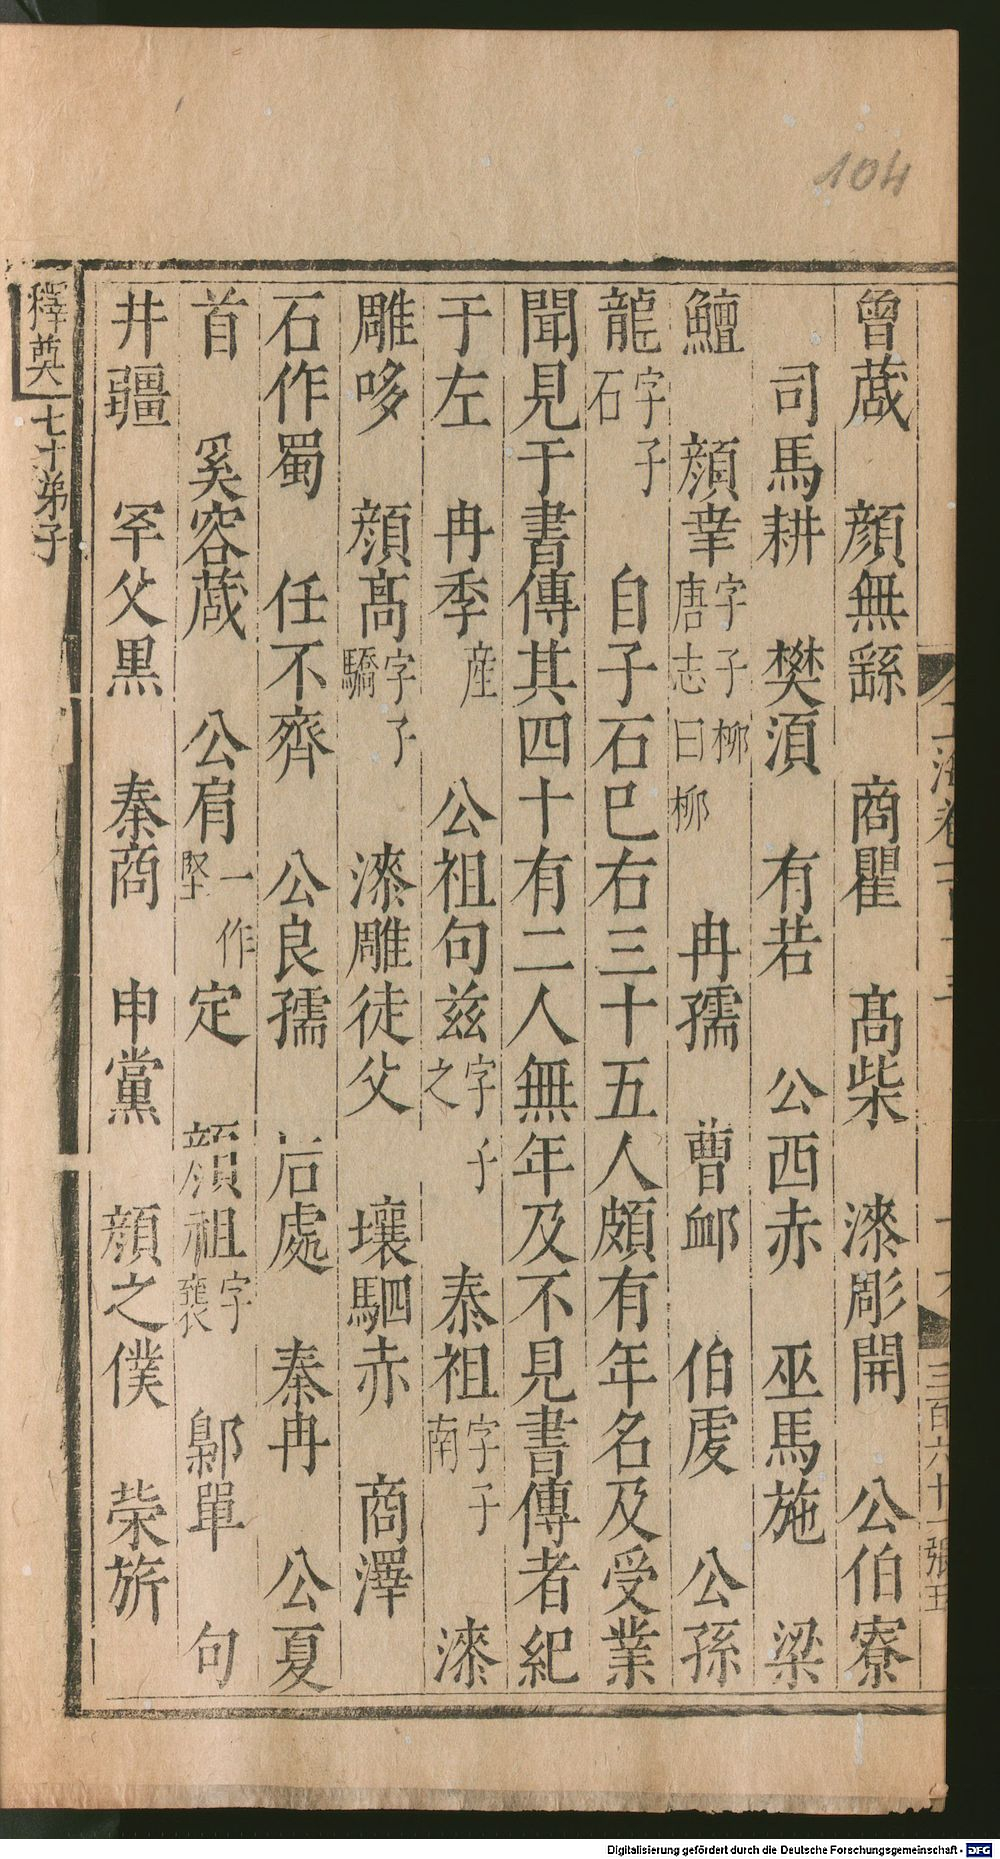 104
曾蒇　顔無繇　商瞿　髙柴　漆彫開　公伯寮
司馬耕　樊湏　有若　公西赤　巫馬施　梁
鱣　顔幸字子柳唐志曰柳　冉孺　曹䘏　伯虔　公孫
龍字子石　自子石巳右三十五人頗有年名及受業
聞見于書傳其四十有二人無年及不見書傳者紀
于左　冉季産　公祖句兹字子之　秦祖字子南　漆
雕哆　顔髙字子驕　漆雕徒父　壤駟赤　商澤
石作蜀　任不齊　公良孺　后處　秦冉　公夏
首　奚容蒇　公肩一作堅定　顔祖字襄　鄡單　句
井疆　罕父黒　秦商　申黨　顔之僕　榮旂
釋奠
七十弟子
三百六十一張五
Digitalisierung gefördert durch die Deutsche Forschungsgemeinschaft - DFG